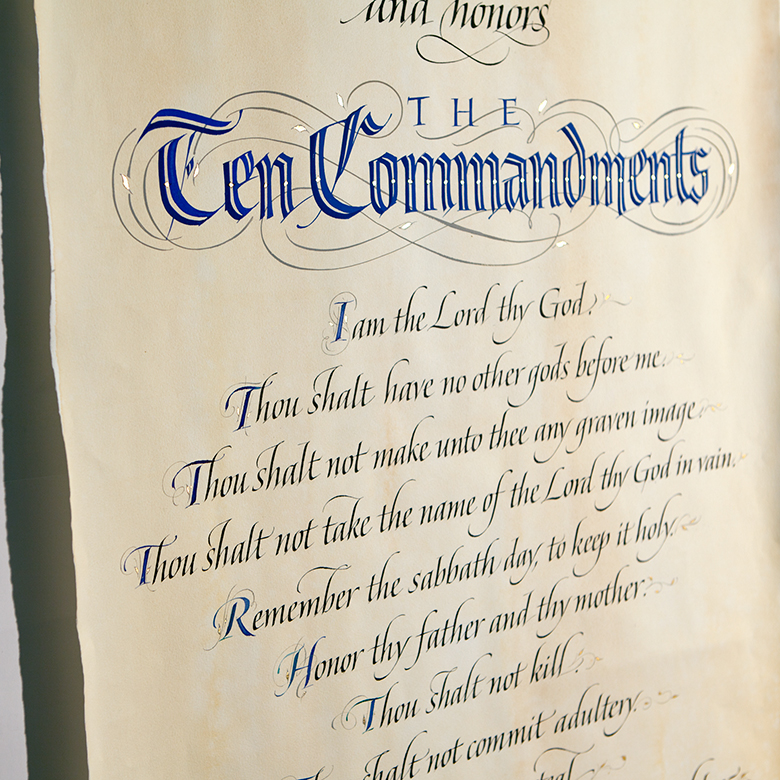 and honors
THE
Ten Commandments
I am the Lord thy God.
Thou shalt have no other gods before me.
Thou shalt not make unto thee any graven image.
Thou shalt not take the name of the Lord thy God in vain.
Remember the sabbath day, to keep it holy.
Honor thy father and thy mother.
Thou shalt not kill.
shalt not commit adultery.